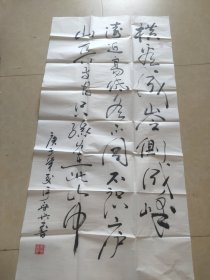 橫看成岭侧成峰
遠近高低各不同不识庐
山真面目只緣身在此山中
庚子